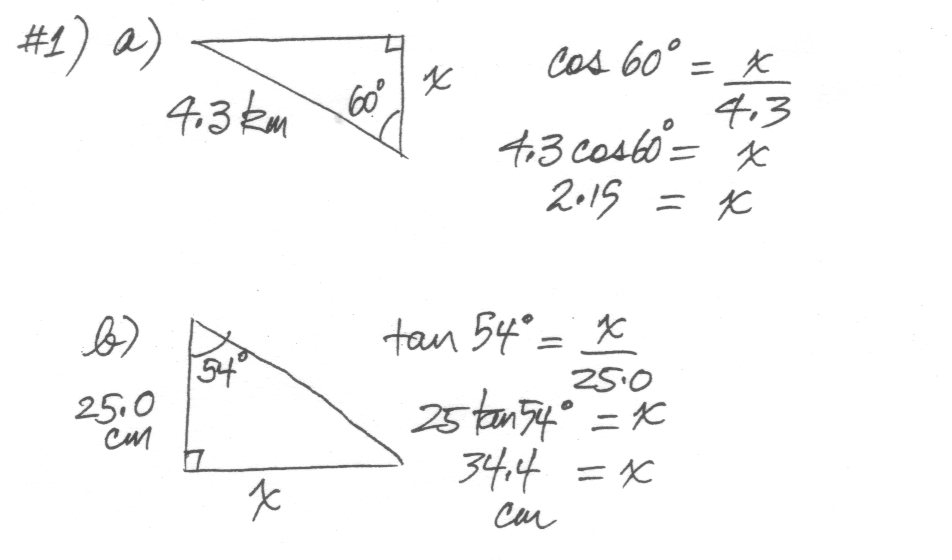 #1) a)
4.3 km
60°
x
cos 60° = x/4.3
4.3 cos 60° = x
2.15 = x
b)
54°
25.0
cm
x
tan 54° = x/25.0
25 tan 54° = x
34.4 = x
cm